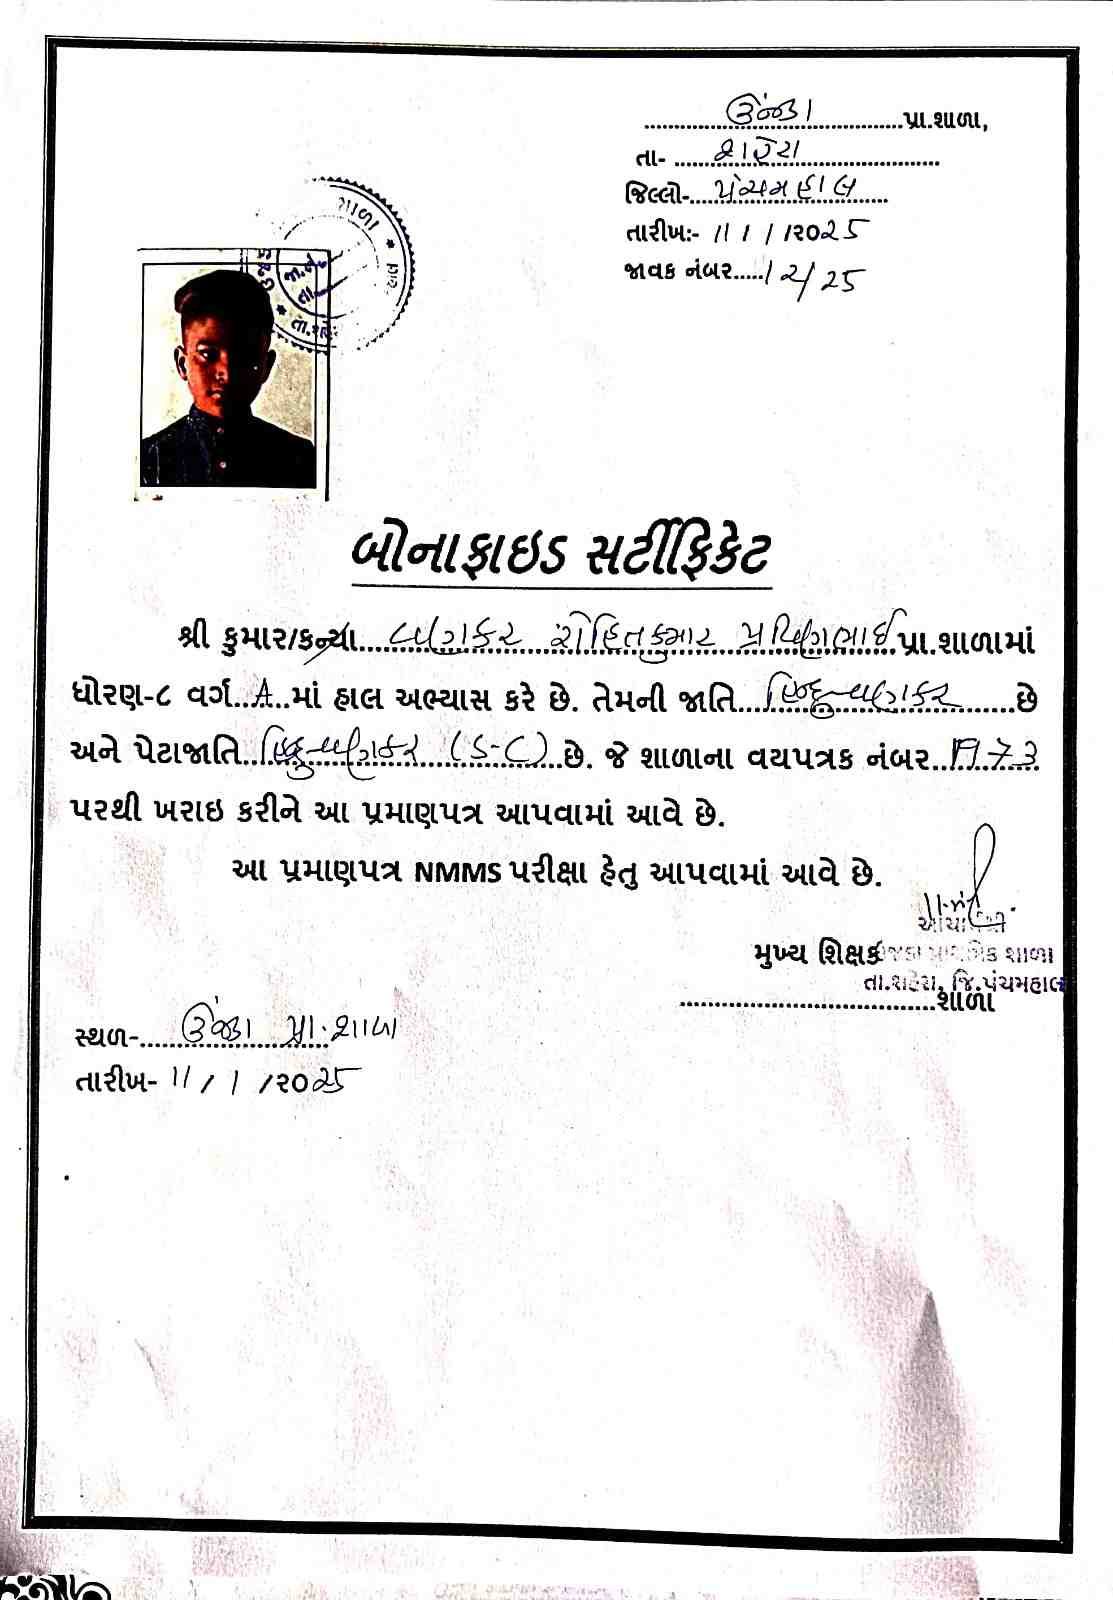 ઊંજડા પ્રા.શાળા,
તા- શહેરા
જિલ્લો- પંચમહાલ
તારીખ:- 11 / 1 /૨૦25
જાવક નંબર.....12/25
શાળા
જા.નં.
તા.
બોનાફાઇડ સર્ટીફિકેટ
શ્રી કુમાર/કન્યા વણકર રોહિતકુમાર પ્રવિણભાઈ પ્રા.શાળામાં
ધોરણ-૮ વર્ગ..A..માં હાલ અભ્યાસ કરે છે. તેમની જાતિ હિન્દુ-વણકર છે
અને પેટાજાતિ હિન્દુ-વણકર (S-C) છે. જે શાળાના વયપત્રક નંબર 1973
પરથી ખરાઇ કરીને આ પ્રમાણપત્ર આપવામાં આવે છે.
આ પ્રમાણપત્ર NMMS પરીક્ષા હેતુ આપવામાં આવે છે.
આચાર્યશ્રી
મુખ્ય શિક્ષક પ્રાથમિક શાળા
તા.શહેરા, જિ.પંચમહાલ
શાળા
સ્થળ- ઊંજડા પ્રા. શાળા
તારીખ- 11 / 1 /૨૦25